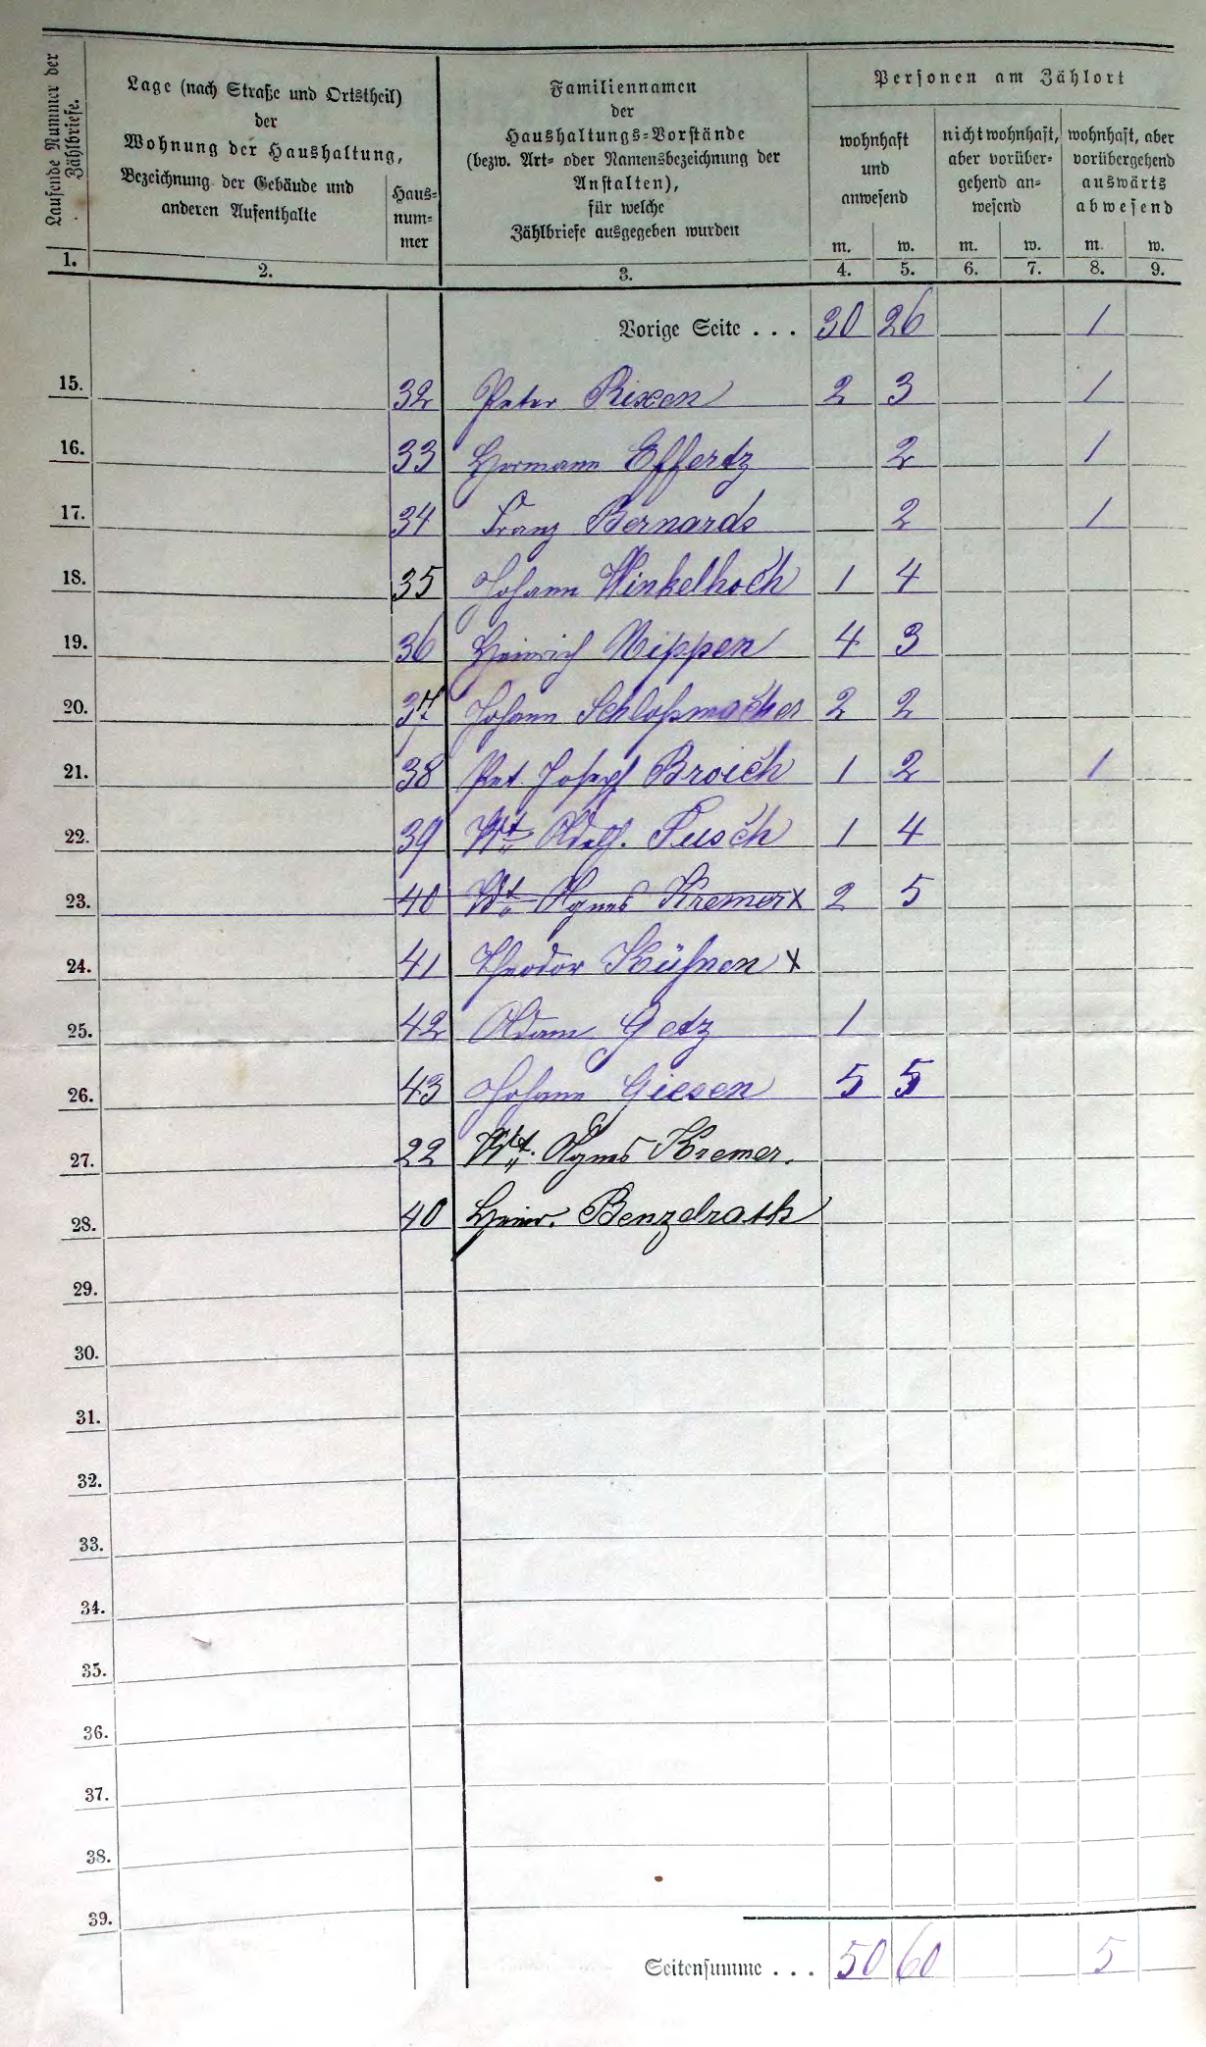 Laufende Nummer der Zählbriefe.
Lage (nach Straße und Ortstheil)
der
Wohnung der Haushaltung,
Bezeichnung der Gebäude und
anderen Aufenthalte
Haus-
num-
mer
Familiennamen
der
Haushaltungs-Vorstände
(bezw. Art- oder Namensbezeichnung der
Anstalten),
für welche
Zählbriefe ausgegeben wurden
Personen am Zählort
wohnhaft
und
anwesend
nicht wohnhaft,
aber vorüber-
gehend an-
wesend
wohnhaft, aber
vorübergehend
auswärts
abwesend
m. w. m. w. m. w.
1. 2. 3. 4. 5. 6. 7. 8. 9.
Vorige Seite . . . 30 26 1
15. 32 Peter Rixen 2 3 1
16. 33 Hermann Effertz 2 1
17. 34 Franz Bernards 2 1
18. 35 Johann Winkelhoch 1 4
19. 36 Heinrich Nippen 4 3
20. 37 Johann Schloßmacher 2 2
21. 38 Pet. Joseph Broich 1 2 1
22. 39 Wt. Adolf. Fusch 1 4
23. 40 Wt. Agnes Kremer x 2 5
24. 41 Theodor Kühnen x
25. 42 Adam Getz 1
26. 43 Johann Giesen 5 5
27. 22 Wt. Agnes Kremer.
28. 40 Heinr. Benzelrath
29.
30.
31.
32.
33.
34.
35.
36.
37.
38.
39.
Seitensumme . . . 50 60 5